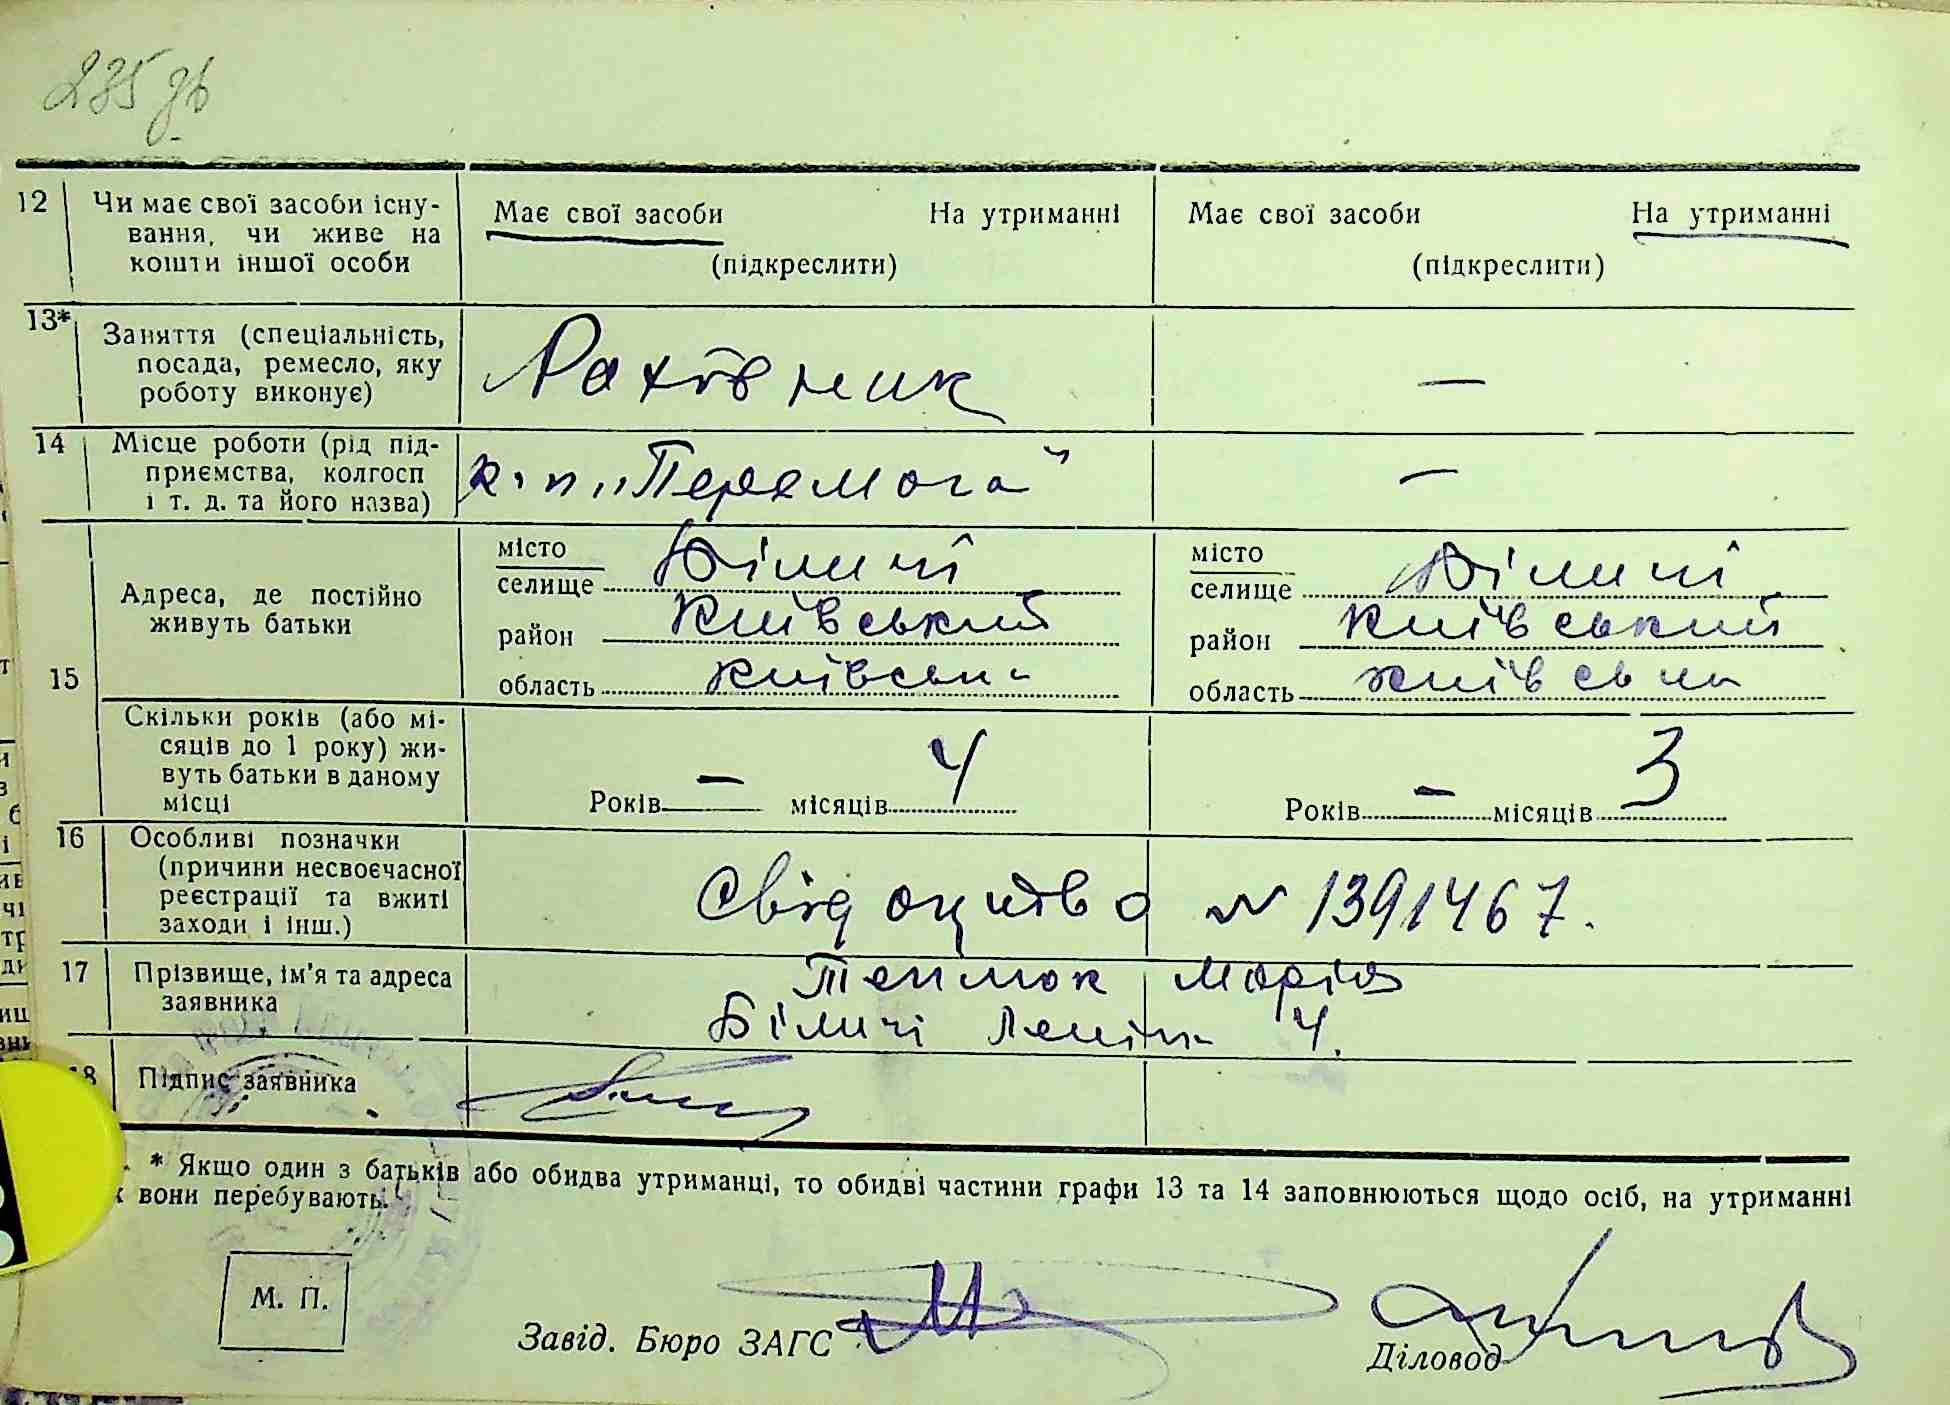 12 Чи має свої засоби існу-
вання, чи живе на
кошти іншої особи
Має свої засоби На утриманні
(підкреслити)
Має свої засоби На утриманні
(підкреслити)
13* Заняття (спеціальність,
посада, ремесло, яку
роботу виконує)
Рахівник
—
14 Місце роботи (рід під-
приємства, колгосп
і т. д. та його назва)
к. п. „Перемога"
—
15
Адреса, де постійно
живуть батьки
місто
селище Біличі
район Київський
область Київськ
місто
селище Біличі
район Київський
область Київськ
Скільки років (або мі-
сяців до 1 року) жи-
вуть батьки в даному
місці
Років — місяців 4
Років — місяців 3
16 Особливі позначки
(причини несвоєчасної
реєстрації та вжиті
заходи і інш.)
Свідоцтво № 1391467.
17 Прізвище, ім'я та адреса
заявника
Марія
Біличі Леніна 4.
18 Підпис заявника
* Якщо один з батьків або обидва утриманці, то обидві частини графи 13 та 14 заповнюються щодо осіб, на утриманні
вони перебувають.
М. П.
Завід. Бюро ЗАГС
Діловод